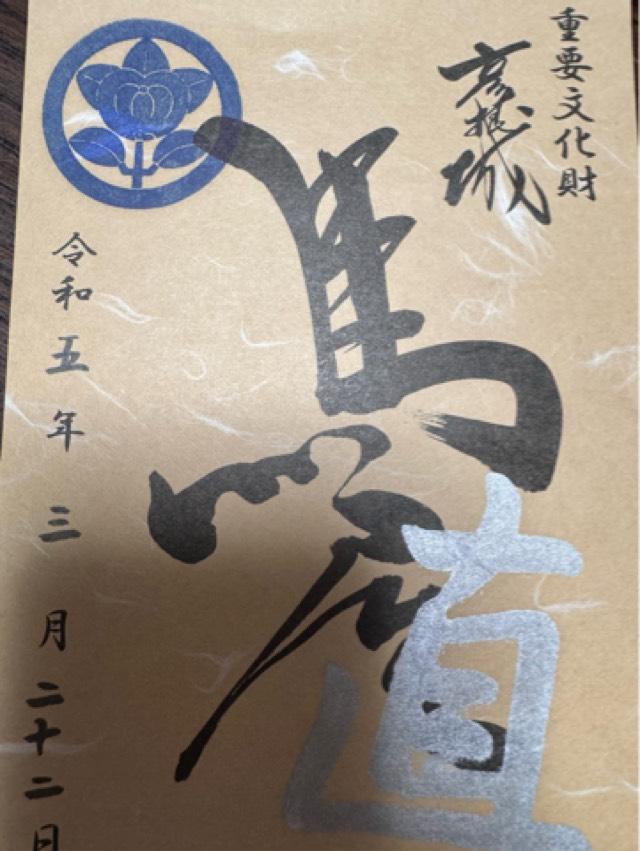 重要文化財
彦根城
馬屋
直
令和五年三月二十二日